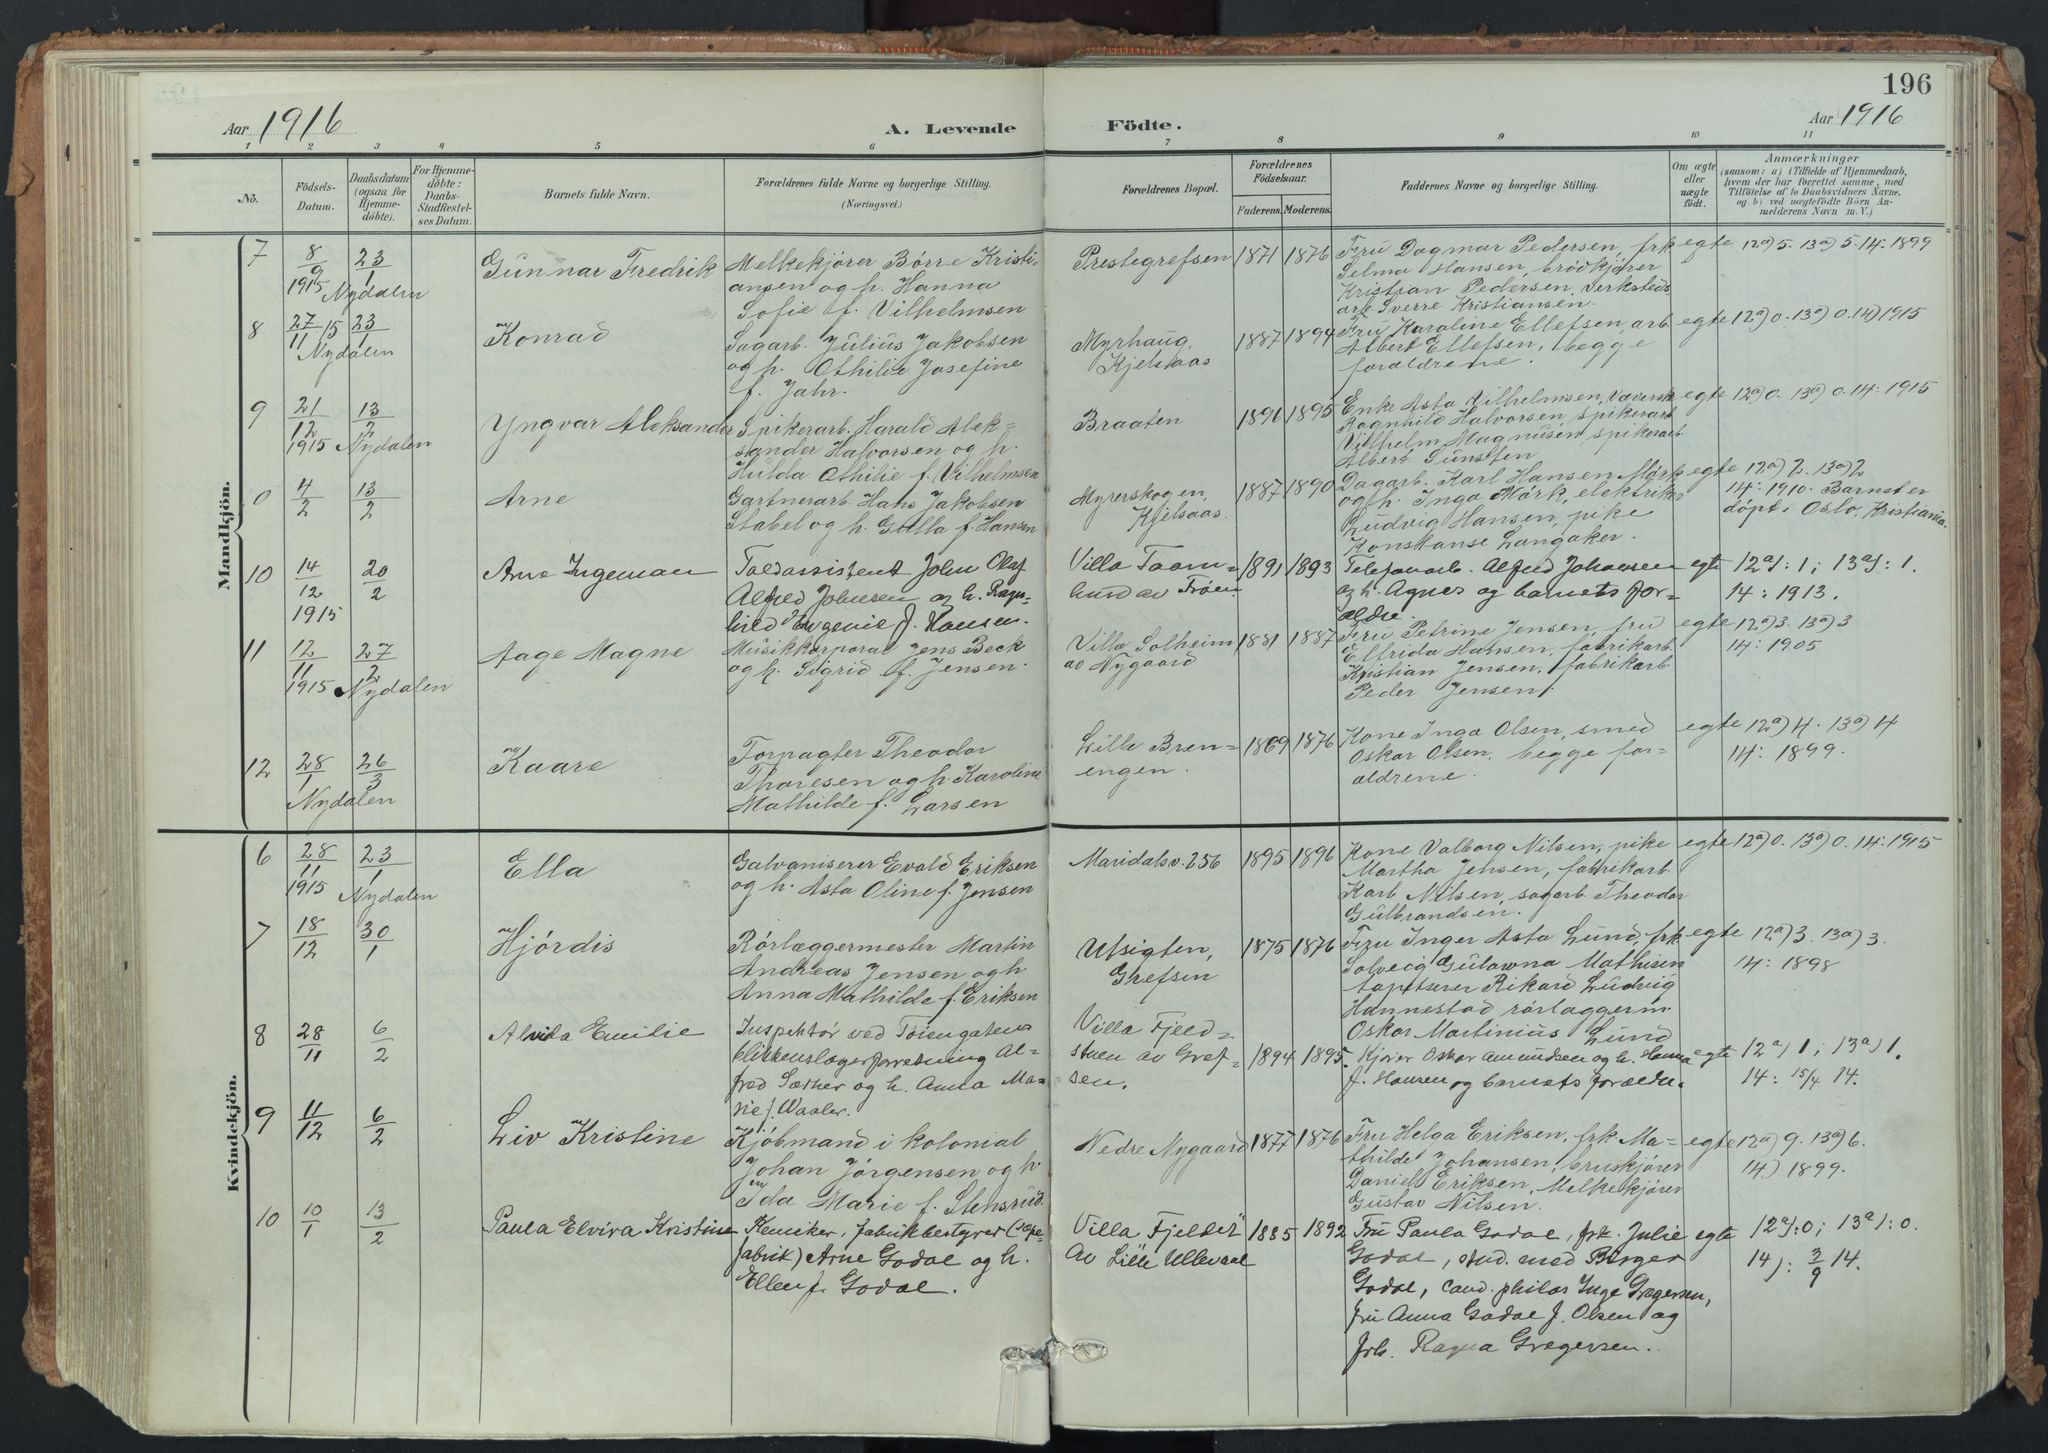 196
Aar 1916 A. Levende Födte. Aar 1916
1 2 3 4 5 6 7 8 9 10 11
No.
Födsels-Datum.
Daabsdatum (ogsaa for Hjemmedöbte).
For Hjemmedöbte: Daabs-Stadfæstelses Datum.
Barnets fulde Navn.
Forældrenes fulde Navne og borgerlige Stilling.
(Næringsvei.)
Forældrenes Bopæl.
Forældrenes Födselsaar.
Faderens. Moderens.
Faddernes Navne og borgerlige Stilling.
Om ægte eller uægte födt.
Anmærkninger
(saasom: a) i Tilfælde af Hjemmedaab,
hvem der har forrettet samme, med
Tilföielse af to Daabsvidners Navne,
og b) ved uægtefödte Börn Anmelderens Navn m. V.)
Mandkjön.
7 8/9 1915 23/1 Nydalen
Gunnar Fredrik
Melkekjörer Börre Kristi-
ansen og h. Hanna
Sofie f. Vilhelmsen
Prestegrefsen 1871 1876
Fru Dagmar Pedersen, frk
Selma Hansen, brödkjörer
Kristian Pedersen, Verksteds
arb. Sverre Kristiansen.
egte 12a) 5. 13a) 5. 14: 1899
8 27/11 15 23/1 Nydalen
Konrad
Sagarb. Julius Jakobsen
og h. Othilie Josefine
f. Jahr.
Myrhaug,
Kjelsaas
1887 1894
Fru Karoline Ellefsen, arb.
Albert Ellefsen, begge
foraldrene.
egte 12a) 0. 13a) 0. 14) 1915
9 21/12 1915 13/2 Nydalen
Yngvar Aleksander
Spikerarb. Harald Alek=
sander Halvorsen og h.
Hulda Othilie f. Vilhelmsen
Braaten 1891 1895
Enke Asta Vilhelmsen, Væversk
Ragnhild Halvorsen, spikerarb
Vilhelm Magnusen, spikerarb.
Albert Sunsten
egte 12a) 0. 13a) 0. 14: 1915
0 4/2 13/2
Arne
Gartnerarb. Hans Jakobsen
Stabel og h. Gulla f. Hansen
Myrerskogen,
Kjelsaas.
1887 1890
Dagarb. Karl Hansen Mörk
og h. Inga Mörk, elektrike
Ludvig Hansen, pike
Konstanse Langaker.
egte 12a) 2. 13a) 2
14: 1910. Barnet er
döpt i Oslo. Kristiania.
10 14/12 1915 20/2
Arne Ingeman
Toldassistent John Olaf
Alfred Johnsen og h. Ragn-
hild Eugenie f. Hansen.
Villa Taarn-
hund av Tröen
1891 1893
Telefonarb. Alfred Johansen
og h. Agnes og barnets for-
ældre.
egte 12a): 1; 13a): 1.
14: 1913.
11 12/11 1915 27/2 Nydalen
Aage Magne
Musikkorporal Jens Beck
og h. Sigrid f. Jensen.
Villa Solheim
av Nygaard
1881 1887
Fru Petrine Jensen, fru
Elfrida Hansen, fabrikarb.
Kristian Jensen, fabrikarb.
Peder Jensen
egte 12a) 3. 13a) 3
14: 1905
12 28/1 26/3 Nydalen
Kaare
Forpagter Theodor
Thoresen og h. Karoline
Mathilde f. Larsen
Lille Bren-
engen.
1869 1876
Kone Inga Olsen, smed
Oskar Olsen, begge for-
aldrene.
egte 12a) 4. 13a) 4
14: 1899.
Kvindekjön.
6 28/11 1915 23/1 Nydalen
Ella
Galvaniserer Evald Eriksen
og h. Asta Oline f. Jensen
Maridalsv. 256 1895 1896
Kone Valborg Nilsen, pike
Martha Jensen, fabrikarb.
Karl Nilsen, sagarb. Theodor
Gulbrandsen.
egte 12a) 0. 13a) 0. 14: 1915
7 18/12 30/1
Hjördis
Rörlæggermester Martin
Andreas Jensen og h
Anna Mathilde f. Eriksen
Utsigten,
Grefsen
1875 1876
Fru Inger Asta Lund, frk
Solveig Mathisen
tapetserer Rikard Ludvig
Hannestad rörlæggerm.
Oskar Martinius Lund
egte 12a) 3. 13a) 3.
14: 1898
8 28/11 6/2
Alvida Emilie
Inspektör ved Töiengatens
blikkenslagerforretning Al-
fred Særner og h. Anna Ma=
rie f. Waaler.
Villa Fjeld-
stuen av Gref-
sen.
1894 1895.
Kjörer Oskar Amundsen og h. Hanna
f. Hansen og barnets forældre.
egte 12a) 1; 13a) 1.
14: 15/4 14.
9 11/12 6/2
Liv Kristine
Kjöbmand i kolonial
Johan Jörgensen og h
Ida Marie f. Stensrud.
Nedre Nygaard 1877 1876
Fru Helga Eriksen, frk Ma-
thilde Johansen, bruskjörer
Daniel Eriksen, Melkekjörer
Gustav Nilsen.
egte 12a) 9. 13a) 6.
14) 1899.
10 10/1 13/2
Paula Elvira Kristine
Kemiker, fabrikbestyrer (Sæpe-
fabrik) Arne Godal og h.
Ellen f. Godal.
Villa "Fjelder"
av Lille Ullevaal
1885 1892
Fru Paula Godal, frk. Julie
Godal, stud. med Birger
Godal, cand. philos Inge Gregersen,
fru Anna Godal f. Olsen og
frk. Ragna Gregersen.
egte 12a): 0; 13a): 0.
14): 3/9 14.